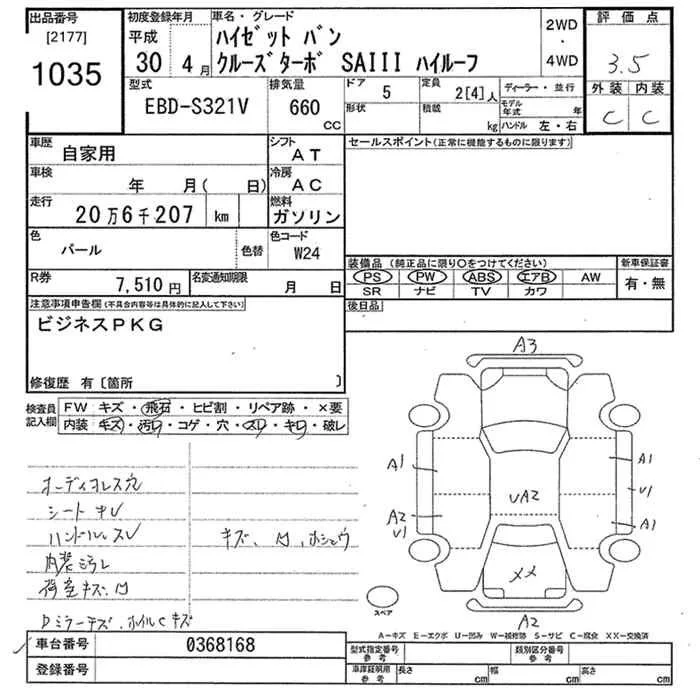 出品番号
[2177]
1035
初度登録年月
平成
30 4月
車名・グレード
ハイゼット バン
クルーズターボ SAIII ハイルーフ
2WD
・
4WD
評価点
3.5
外装 内装
C C
型式
EBD-S321V
排気量
660
cc
ドア
5
形状
定員
2[4]人
積載
kg
ディーラー・並行
モデル年式 年
ハンドル 左・右
車歴
自家用
シフト
AT
車検
年 月( 日)
冷房
AC
走行
20万6千207 km
燃料
ガソリン
色
パール
色替
色コード
W24
R券
7,510円
名変通知期限
月 日
セールスポイント(正常に機能するものに限ります)
装備品 (純正品に限り○をつけてください)
PS PW ABS エアB AW
SR ナビ TV カワ
新車保証書
有・無
後日品
注意事項申告欄(不具合内容等は具体的に記入して下さい)
ビジネスPKG
修復歴 有〔箇所 〕
検査員
記入欄
FW キズ・飛石・ヒビ割・リペア跡・×要
内装 キズ・汚れ・コゲ・穴・スレ・キレ・破レ
オーディオレス穴
シート キレ
ハンドルスレ
内装汚レ
荷室キズ、凹
Dミラーキズ、ホイルCキズ
キズ、凹、ホショウ
A3
A1
A2
U1
UA2
XX
A1
U1
A1
A2
スペア
A-キズ E-エクボ U-凹み W-補修跡 S-サビ C-腐食 XX-交換済
車台番号
0368168
登録番号
型式指定番号
参考
類別区分番号
参考
車庫証明用
参考
長さ cm
幅 cm
高さ cm